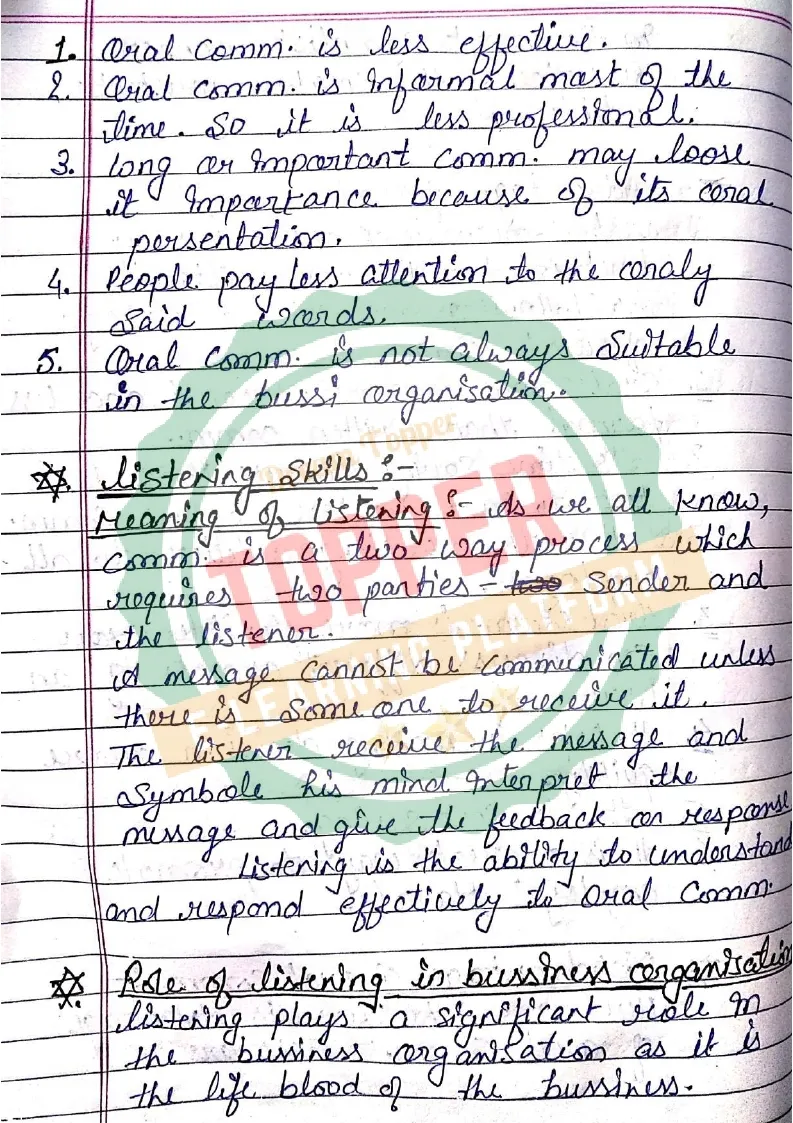 1. Oral comm. is less effective.
2. Oral comm. is informal most of the
time. So it is less professional.
3. long or important comm. may loose
it importance because of its oral
persentation.
4. People pay less attention to the oraly
said words.
5. Oral comm. is not always suitable
in the bussi organisation.
listening skills :-
Meaning of listening :- As we all know,
comm. is a two way process which
requires two parties - two Sender and
the listener.
A message cannot be communicated unless
there is some one to receive it.
The listener receive the message and
symbole his mind interpret the
message and give the feedback or response
Listening is the ability to understand
and respond effectively to oral comm.
Role of listening in bussiness organisation
listening plays a significant role in
the bussiness organisation as it is
the life blood of the bussiness.
Topper
TOPPER
E-LEARNING PLATFORM